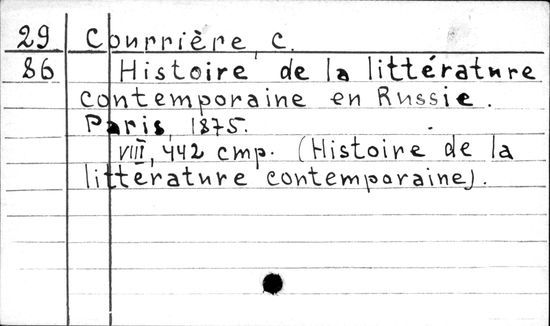 29 Courrière, C.
86 Histoire de la littérature
contemporaine en Russie.
Paris, 1875.
VIII, 442 стр. (Histoire de la
littérature contemporaine).